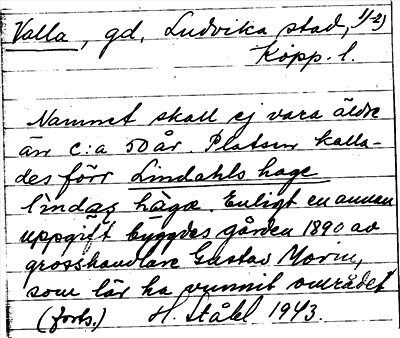 Valla, gd, Ludvika stad, 1/(-2)
Kopp. l.
Namnet skall ej vara äldre
än c:a 50 år. Platsen kalla-
des förr Lindahls hage
lindas hàga. Enligt en annan
uppgift byggdes gården 1890 av
grosshandlare Gustav Morin,
som lär ha vunnit området
(forts.) H. Ståhl 1943.